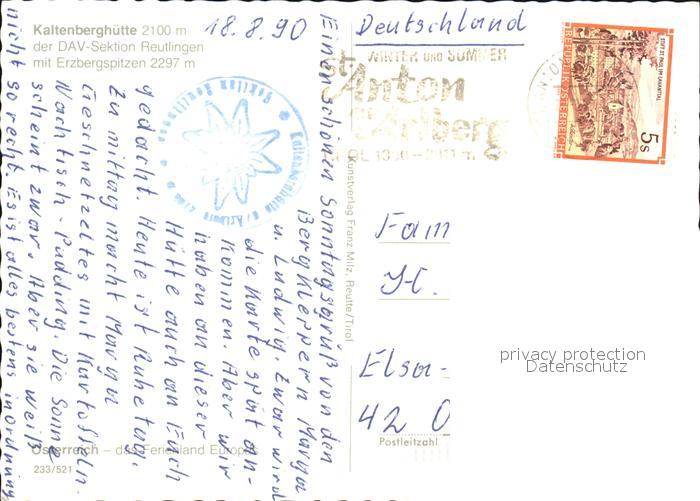 Kaltenberghütte 2100 m
der DAV-Sektion Reutlingen
mit Erzbergspitzen 2297 m
18.8.90
Einen schönen Sonntagsgruß von den
Bergklerern Marga
u. Ludwig. Zwar wird
die Karte spät an-
kommen. Aber wir
haben an dieser
Hütte auch an Euch
gedacht. Heute ist Ruhetag.
Zu mittag macht Marga
Geschnetzeltes mit Kartoffeln.
Nachtisch - Pudding. Die Sonne
scheint zwar. Aber sie weiß
nicht so recht. Es ist alles bestens in Ordnung
Österreich – das Ferienland Europas
233/521
Kunstverlag Franz Milz, Reutte/Tirol
Deutschland
WINTER UND SOMMER
St. Anton
Arlberg
STIFT ST. PAUL IM LAVANTTAL
REPUBLIK ÖSTERREICH
5 S
Fam
H.
Elsa-
42 0
Postleitzahl
privacy protection
Datenschutz